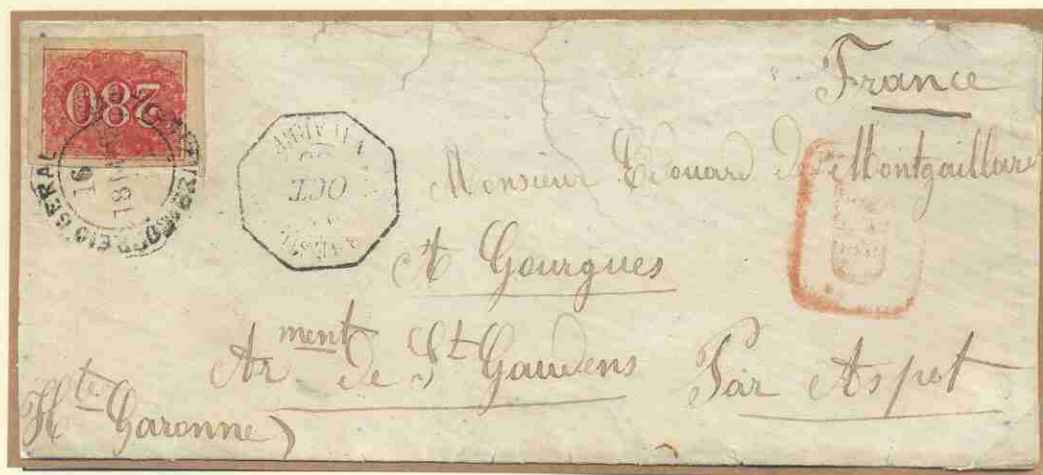 France
280
CORREIO GERAL
16
OCT
Monsieur Edouard de Montgaillard
A Gourgues
Ar ment de St Gaudens
Par Aspet
Hte Garonne)